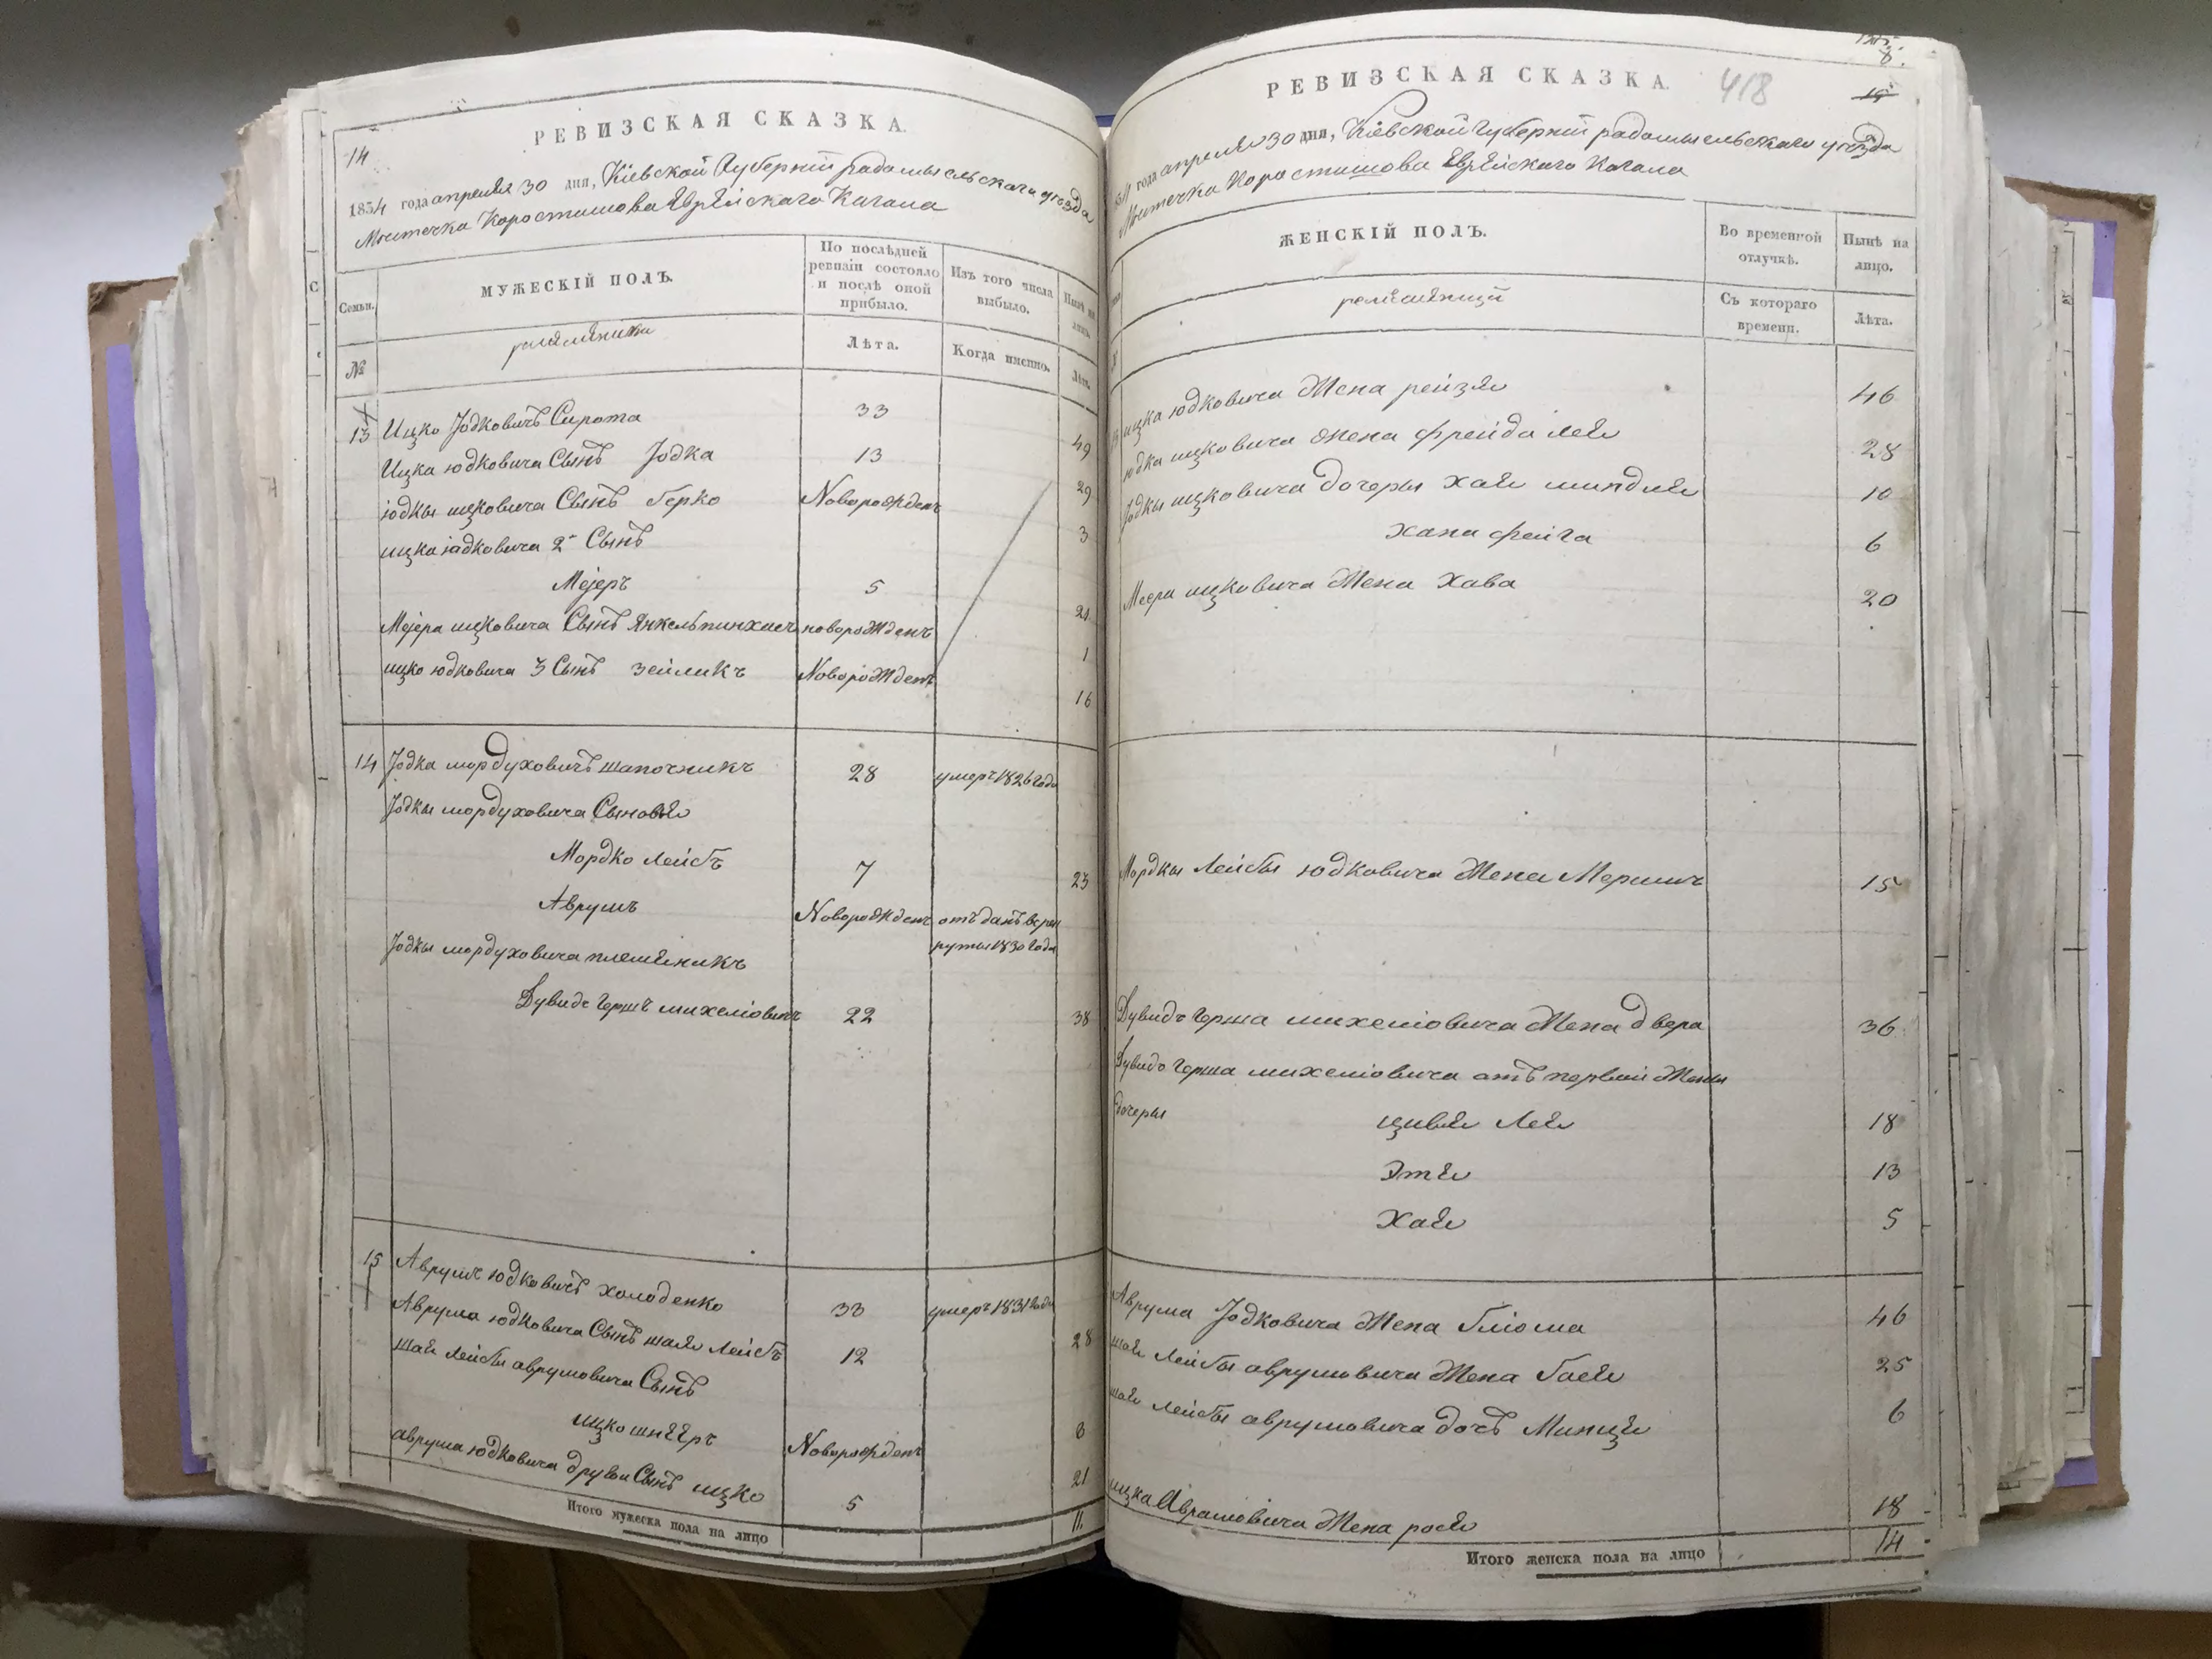 14
РЕВИЗСКАЯ СКАЗКА.
1834 года апреля 30 дня, Кіевской Губерніи радомысельскаго уезда
Мистечка Коростишова Еврейскаго Кагала
Семьи.
МУЖЕСКІЙ ПОЛЪ.
По послѣдней ревизіи состояло и послѣ оной прибыло.
Изъ того числа выбыло.
Нынѣ на лицо.
№
Лѣта.
Когда именно.
Лѣта.
13 Ицко Іодковичъ Сирота 33 49
Ицка юдковича Сынъ Іодка 13 29
іодкы ицковича Сынъ Берко Новорожденъ 3
ицка іадковича 2й Сынъ
Меjеръ 5 21
Меjера ицковича Сынъ Янкель пинхасъ новорожденъ 1
ицко юдковича 3 Сынъ зейликъ Новорожденъ 16
14 Іодка мордуховичъ шапочникъ 28 умеръ 1826 года
Іодкы мордуховича Сыновя
Мордко Лейбъ 7 23
Аврумъ Новорожденъ отъданъ в рек
руты 1830 года
Іодкы мордуховича племеникъ
Дувидъ Гершъ михеліовичъ 22 38
15 Аврумъ юдковичъ холоденко 33 умеръ 1831 года
Аврума юдковича Сынъ шая Лейбъ 12 28
шая Лейбы аврумовича Сынъ
ицко шнееръ Новорожденъ 8
аврума юдковича другои Сынъ ицко 5 21
Итого мужеска пола на лицо 11.
8.
19
418
РЕВИЗСКАЯ СКАЗКА.
года апреля 30 дня, Кіевской Губерніи радомысельскаго уезда
Мистечка Коростишова Еврейскаго Кагала
ЖЕНСКІЙ ПОЛЪ.
Во временной отлучкѣ.
Нынѣ на лицо.
Съ котораго времени.
Лѣта.
ицка юдковича Жена рейзя 46
юдка ицковича жена фрейда лея 28
Іодкы ицковича дочеры хая миндля 10
хана фейга 6
Меера ицковича Жена Хава 20
Мордкы Лейбы юдковича Жена Меримъ 15
Дувидъ Герша михеліовича Жена двера 36
Дувидъ Герша михеліовича отъ первой Жены
дочеры цивя Лея 18
Этя 13
Хая 5
Аврума Іодковича Жена блюма 46
шая Лейбы аврумовича Жена бася 25
шая Лейбы аврумовича дочъ Минця 6
ицка Аврамовича Жена рася 18
Итого женска пола на лицо 14